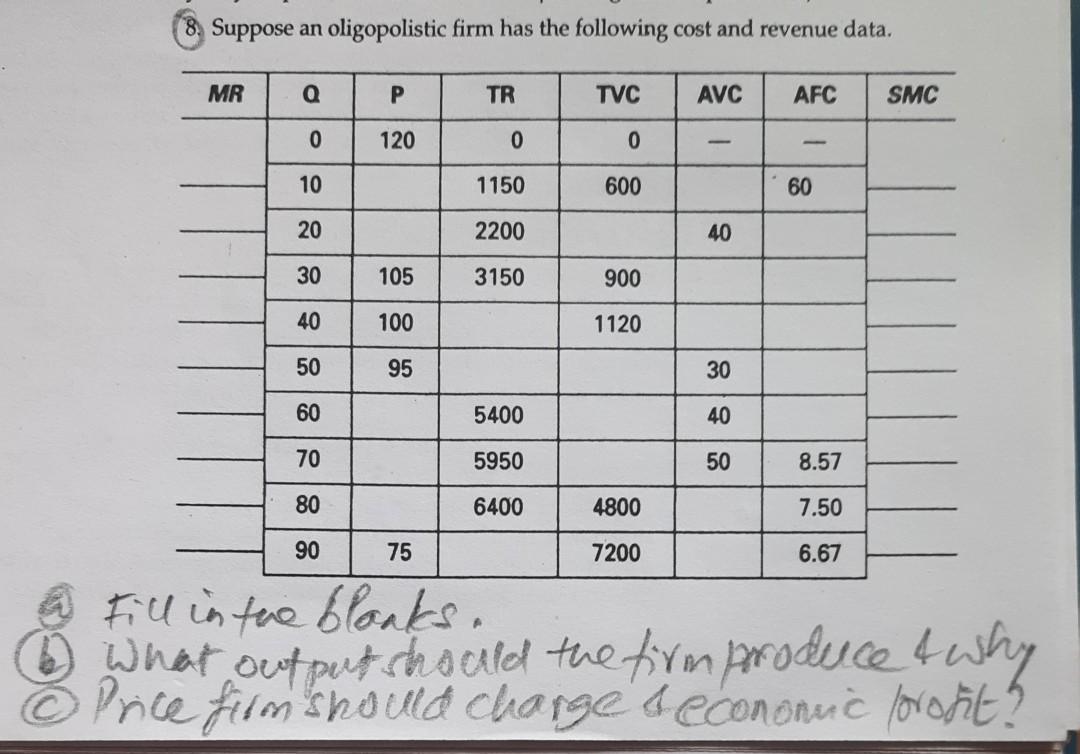 8. Suppose an oligopolistic firm has the following cost and revenue data.
MR Q P TR TVC AVC AFC SMC
0 120 0 0 — —
10 1150 600 60
20 2200 40
30 105 3150 900
40 100 1120
50 95 30
60 5400 40
70 5950 50 8.57
80 6400 4800 7.50
90 75 7200 6.67
a Fill in the blanks.
b What output should the firm produce & why
c Price firm should charge & economic profit?